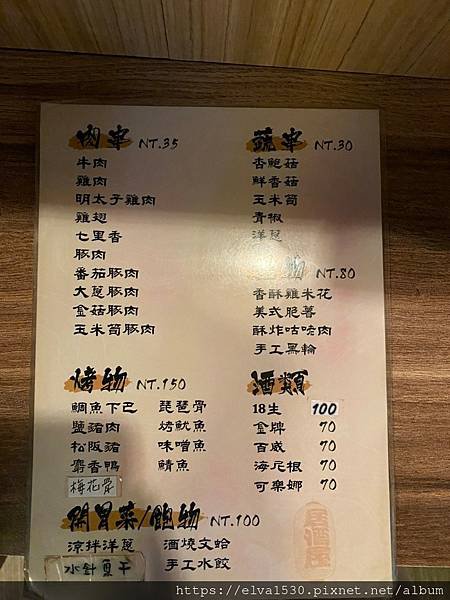 肉串 NT.35
牛肉
雞肉
明太子雞肉
雞翅
七里香
豚肉
番茄豚肉
大蔥豚肉
金菇豚肉
玉米筍豚肉
蔬串 NT.30
杏鮑菇
鮮香菇
玉米筍
青椒
洋蔥
物 NT.80
香酥雞米花
美式脆薯
酥炸咕咾肉
手工黑輪
烤物 NT.150
鯛魚下巴 琵琶骨
鹽豬肉 烤魷魚
松阪豬 味噌魚
麝香鴨 鯖魚
梅花骨
酒類
18生 100
金牌 70
百威 70
海尼根 70
可樂娜 70
開胃菜/飽物 NT.100
涼拌洋蔥 酒燒文蛤
水針魚干 手工水餃
居酒屋
https://elva1530.pixnet.net/album